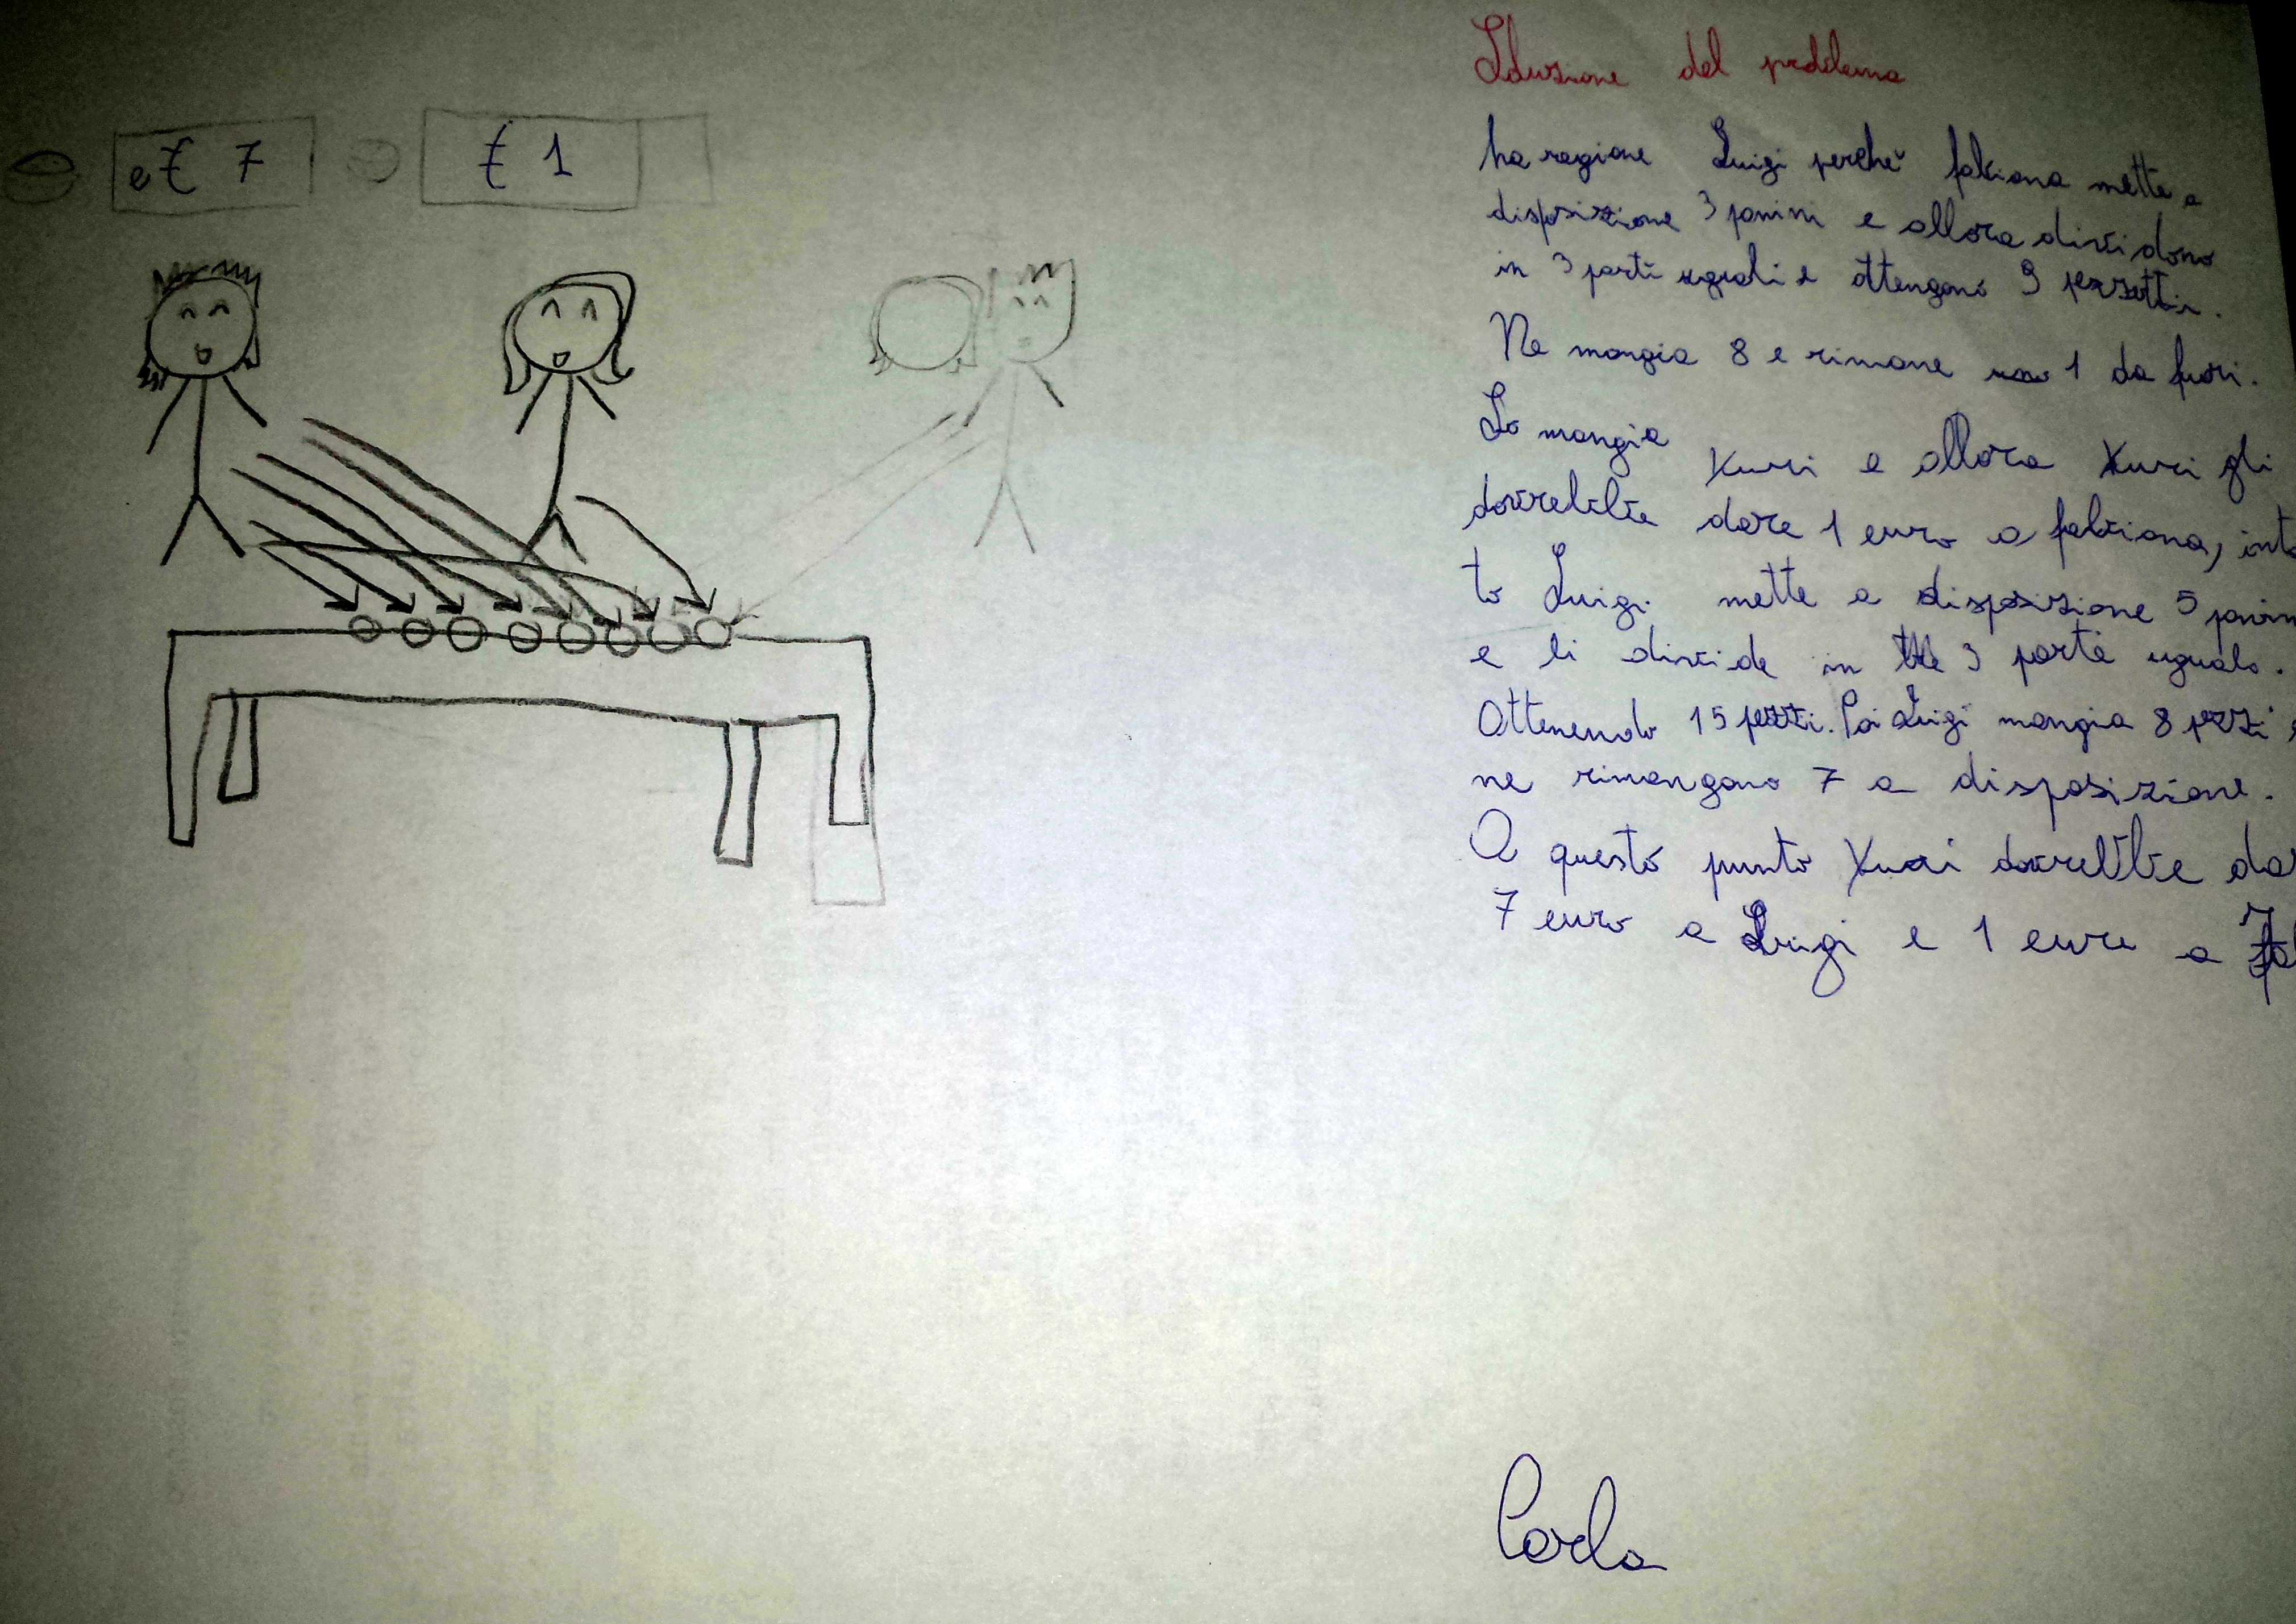 e€ 7
€ 1
Soluzione del problema
ha ragione Luigi perchè fabiana mette a
disposizione 3 panini e allora dividono
in 3 parti uguali e ottengono 9 pezzetti.
Ne mangia 8 e rimane 1 da fuori.
Lo mangia Yuri e allora Yuri gli
dovrebbe dare 1 euro a fabiana,
to Luigi mette a disposizione 5
e li divide in 3 parte uguale.
Ottenendo 15 pezzi. Poi Luigi mangia 8 pezzi
ne rimangono 7 a disposizione.
A questo punto Yuri dovrebbe
7 euro a Luigi e 1 euro a
Carla